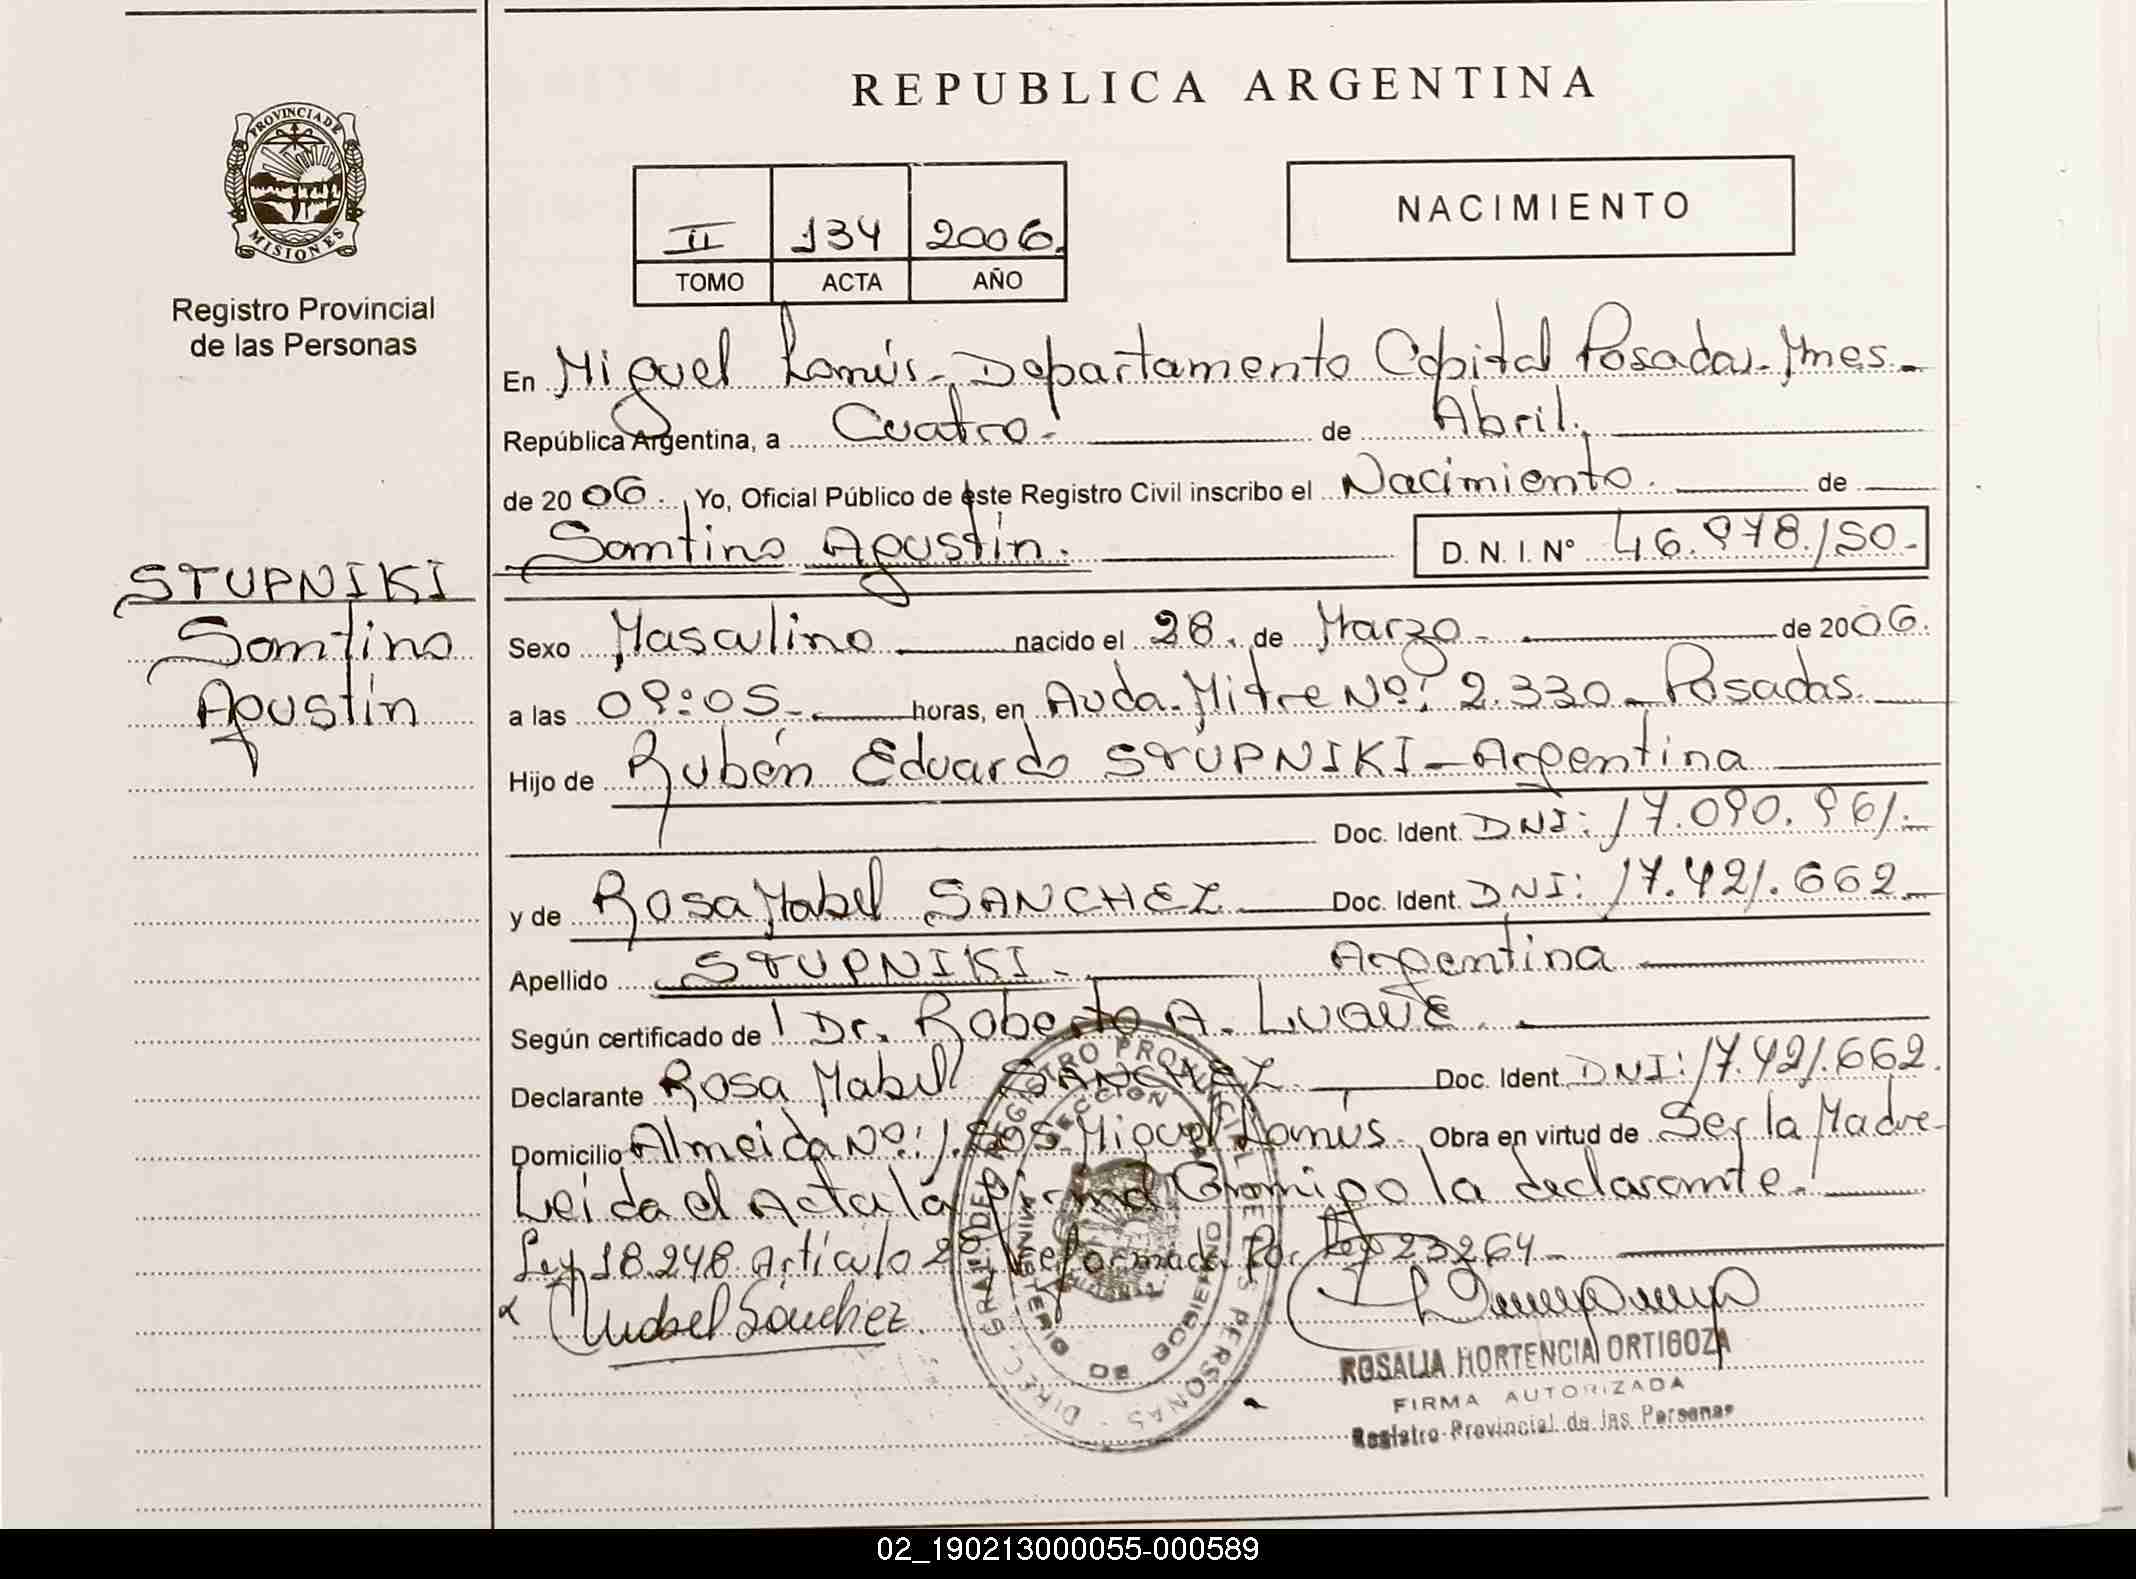 PROVINCIA DE
MISIONES
Registro Provincial
de las Personas
STUPNIKI
Santino
Agustín
REPUBLICA ARGENTINA
II 134 2006.
TOMO ACTA AÑO
NACIMIENTO
En Miguel Lanús-Departamento Capital Posadas-Mnes-
República Argentina, a Cuatro. de Abril.
de 2006. Yo, Oficial Público de este Registro Civil inscribo el Nacimiento. de
Santino Agustín. D. N. I. Nº 46.978.150-
Sexo Masculino nacido el 28. de Marzo- de 2006.
a las 09:05- horas, en Avda-Mitre Nº: 2.330-Posadas.
Hijo de Rubén Eduardo STUPNIKI-Argentina
Doc. Ident. DNI: 17.090.961.-
y de Rosa Mabel SANCHEZ Doc. Ident. DNI: 17.421.662-
Apellido STUPNIKI- Argentina
Según certificado de Dr. Roberto A.
Declarante Rosa Mabel SANCHEZ Doc. Ident. DNI: 17.421.662.
Domicilio Almeida Nº: 1.505-Miguel Lanús- Obra en virtud de Ser la Madre-
Leida el Acta la firma Conmigo la declarante.
Ley 18.248 Artículo 2º Reformada Por Ley 23264-
Mabel Sánchez
DIREC. GRAL. DEL REGISTRO PROVINCIAL DE LAS PERSONAS
MINISTERIO DE GOBIERNO
ROSALIA HORTENCIA ORTIGOZA
FIRMA AUTORIZADA
Registro Provincial de las Personas
02_190213000055-000589